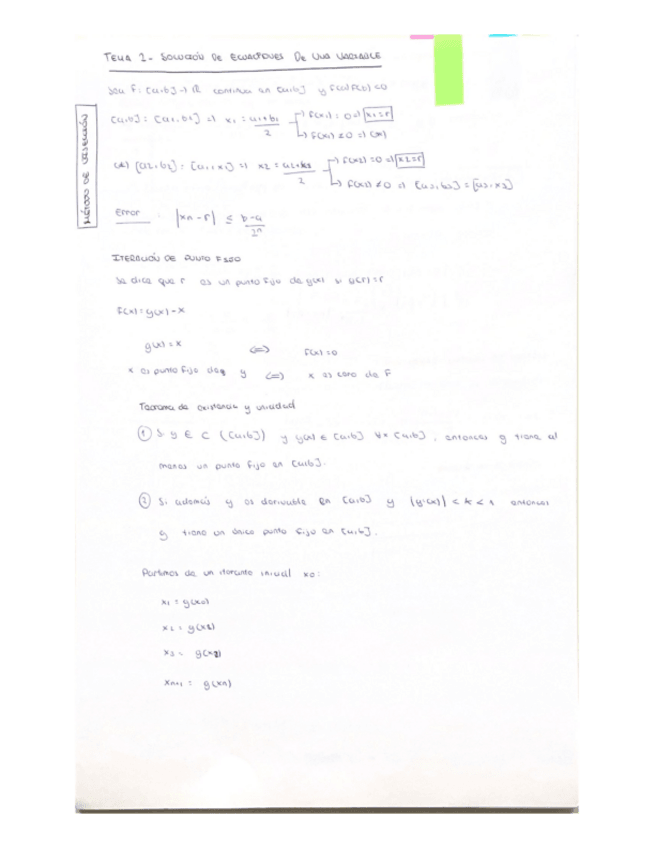 TEMA 1 - SOLUCIÓN DE ECUACIONES DE UNA VARIABLE
MÉTODO DE BISECCIÓN
Sea F: [a,b] → ℝ continua en [a,b] y F(a)F(b) < 0
[a,b] = [a1,b1] ⇒ x1 = (a1+b1)/2 → F(x1) = 0 ⇒ x1 = r
↳ F(x1) ≠ 0 ⇒ (*)
(*) [a2,b2] = [a1,x1] ⇒ x2 = (a2+b2)/2 → F(x2) = 0 ⇒ x2 = r
↳ F(x2) ≠ 0 ⇒ [a3,b3] = [a3,x2]
Error |xn - r| ≤ (b-a)/2ⁿ
ITERACIÓN DE PUNTO FIJO
Se dice que r es un punto fijo de g(x) si g(r) = r
F(x) = g(x) - x
g(x) = x ⇔ F(x) = 0
x es punto fijo de g y ⇔ x es cero de F
Teorema de existencia y unicidad
① Si g ∈ C ([a,b]) y g(x) ∈ [a,b] ∀x [a,b], entonces g tiene al
menos un punto fijo en [a,b].
② Si además g es derivable en [a,b] y |g'(x)| < k < 1 entonces
g tiene un único punto fijo en [a,b].
Partimos de un iterante inicial x0:
x1 = g(x0)
x2 = g(x1)
x3 = g(x2)
xn+1 = g(xn)